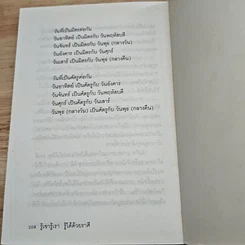 วันที่เป็นมิตรต่อกัน
วันอาทิตย์ เป็นมิตรกับ วันพฤหัสบดี
วันจันทร์ เป็นมิตรกับ วันพุธ (กลางวัน)
วันอังคาร เป็นมิตรกับ วันศุกร์
วันเสาร์ เป็นมิตรกับ วันพุธ (กลางคืน)
วันที่เป็นศัตรูต่อกัน
วันอาทิตย์ เป็นศัตรูกับ วันอังคาร
วันจันทร์ เป็นศัตรูกับ วันพฤหัสบดี
วันศุกร์ เป็นศัตรูกับ วันเสาร์
วันพุธ (กลางวัน) เป็นศัตรูกับ วันพุธ (กลางคืน)
รู้เขารู้เรา รู้ได้ด้วยราศี